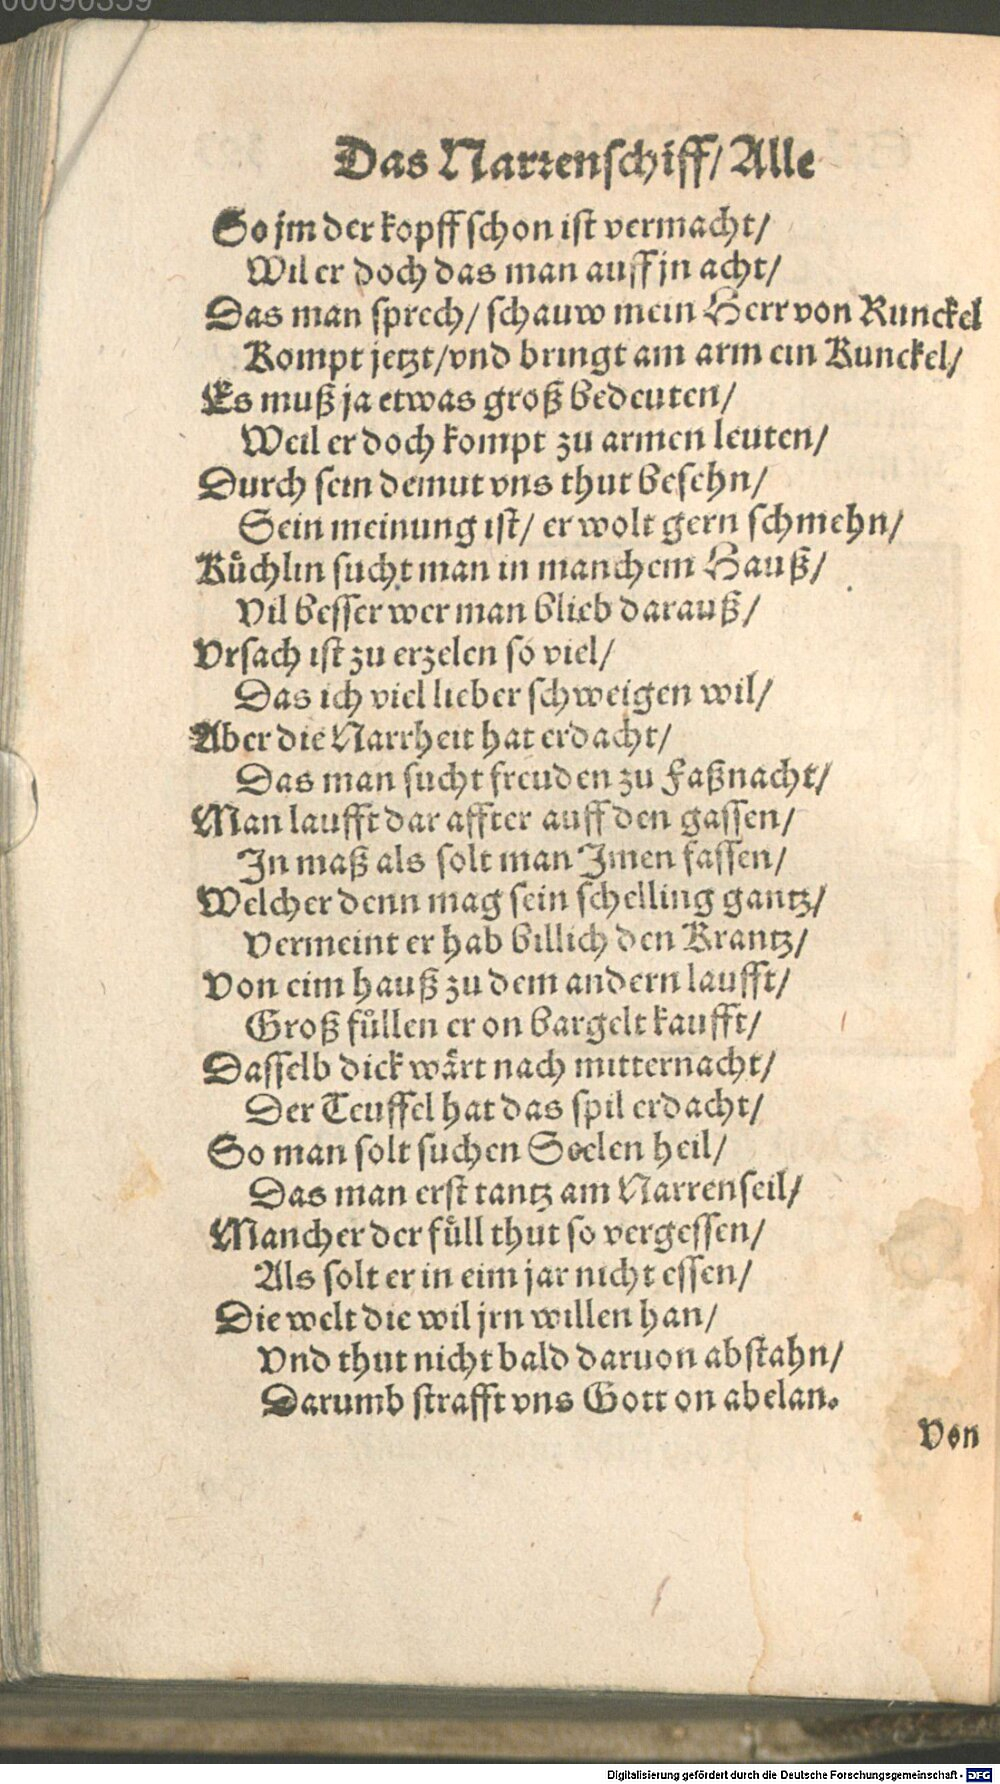 00090359
Das Narrenschiff/ Alle
So jm der kopff schon ist vermacht/
Wil er doch das man auff jn acht/
Das man sprech/ schauw mein Herr von Runckel
Kompt jetzt/ vnd bringt am arm ein Kunckel/
Es muß ja etwas groß bedeuten/
Weil er doch kompt zu armen leuten/
Durch sein demut vns thut besehn/
Sein meinung ist/ er wolt gern schmehn/
Kuͤchlin sucht man in manchem Hauß/
Vil besser wer man blieb darauß/
Vrsach ist zu erzelen so viel/
Das ich viel lieber schweigen wil/
Aber die Narrheit hat erdacht/
Das man sucht freuden zu Faßnacht/
Man laufft dar affter auff den gassen/
In maß als solt man Imen fassen/
Welcher denn mag sein schelling gantz/
Vermeint er hab billich den Krantz/
Von eim hauß zu dem andern laufft/
Groß fuͤllen er on bargelt kaufft/
Dasselb dick waͤrt nach mitternacht/
Der Teuffel hat das spil erdacht/
So man solt suchen Seelen heil/
Das man erst tantz am Narrenseil/
Mancher der fuͤll thut so vergessen/
Als solt er in eim jar nicht essen/
Die welt die wil jrn willen han/
Vnd thut nicht bald daruon abstahn/
Darumb strafft vns Gott on abelan.
Von
Digitalisierung gefördert durch die Deutsche Forschungsgemeinschaft - DFG